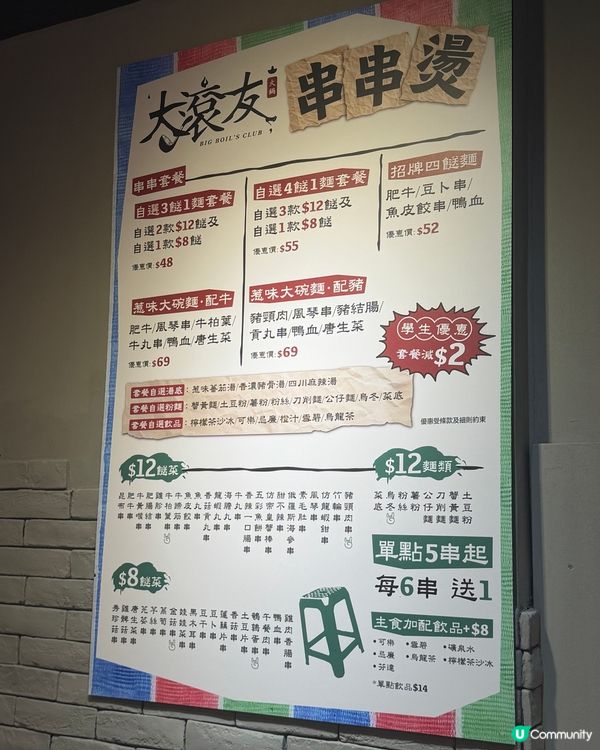 大滾友
火鍋
BIG BOIL'S CLUB
串串燙
串串套餐
自選3餸1麵套餐
自選2款$12餸及
自選1款$8餸
優惠價: $48
自選4餸1麵套餐
自選3款$12餸及
自選1款$8餸
優惠價: $55
招牌四餸麵
肥牛/豆卜串/
魚皮餃串/鴨血
優惠價: $52
惹味大碗麵·配牛
肥牛/風琴串/牛柏葉/
牛丸串/鴨血/唐生菜
優惠價: $69
惹味大碗麵·配豬
豬頸肉/風琴串/豬結腸/
貢丸串/鴨血/唐生菜
優惠價: $69
學生優惠
套餐減$2
套餐自選湯底：惹味蕃茄湯/香濃豬骨湯/四川麻辣湯
套餐自選粉麵：蟹黃麵/土豆粉/薯粉/粉絲/刀削麵/公仔麵/烏冬/菜底
套餐自選飲品：檸檬茶沙冰/可樂/忌廉/橙汁/雪碧/烏龍茶
優惠受條款及細則約束
$12餸菜
豬頸肉串
竹輪串
仿龍蝦鉗串
風琴串
素毛肚串
俄羅斯海參串
甜不辣串
仿蟹皇棒串
五彩魚蟹串
香辣一口腸串
海膽丸串
龍蝦丸串
香菇貢丸串
魚丸串
魚皮餃串
牛筋丸串
牛柏葉串
雞胗串
肥腸串
牛黃喉串
肥牛串
昆布串
$12麵類
土豆粉
蟹黃麵
刀削麵
公仔麵
薯粉
粉絲
烏冬
菜底
單點5串起
每6串 送1
$8餸菜
雞肉香腸串
鴨血串
午餐肉串
鵪鶉蛋串
土豆片串
香菇串
蓮藕片串
豆卜串
豆干串
黑木耳串
娃娃菜串
金菇串
萵筍串
芊絲串
芫荽串
唐生菜串
雞脾菇串
秀珍菇串
主食加配飲品+$8
·可樂 ·雪碧 ·礦泉水
·忌廉 ·烏龍茶 ·檸檬茶沙冰
·芬達
*單點飲品$14
U Community